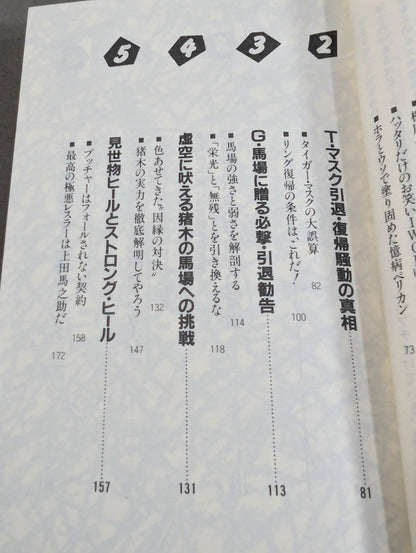 ハッタリだけのお笑
ホラとウソで塗り固めた臆病ペリカン
73
2
T・マスク引退・復帰騒動の真相
81
■タイガーマスクの大誤算
82
■リング復帰の条件は、これだ！
100
3
G・馬場に贈る必撃・引退勧告
113
■馬場の強さと弱さを解剖する
114
■「栄光」と、「無残」とを引き換えるな
118
4
虚空に吠える猪木の馬場への挑戦
131
■色あせてきた〝因縁の対決〟
132
■猪木の実力を徹底解明してやろう
147
5
見世物ヒールとストロング・ヒール
157
■ブッチャーはフォールされない契約
158
■最高の極悪レスラーは上田馬之助だ
172